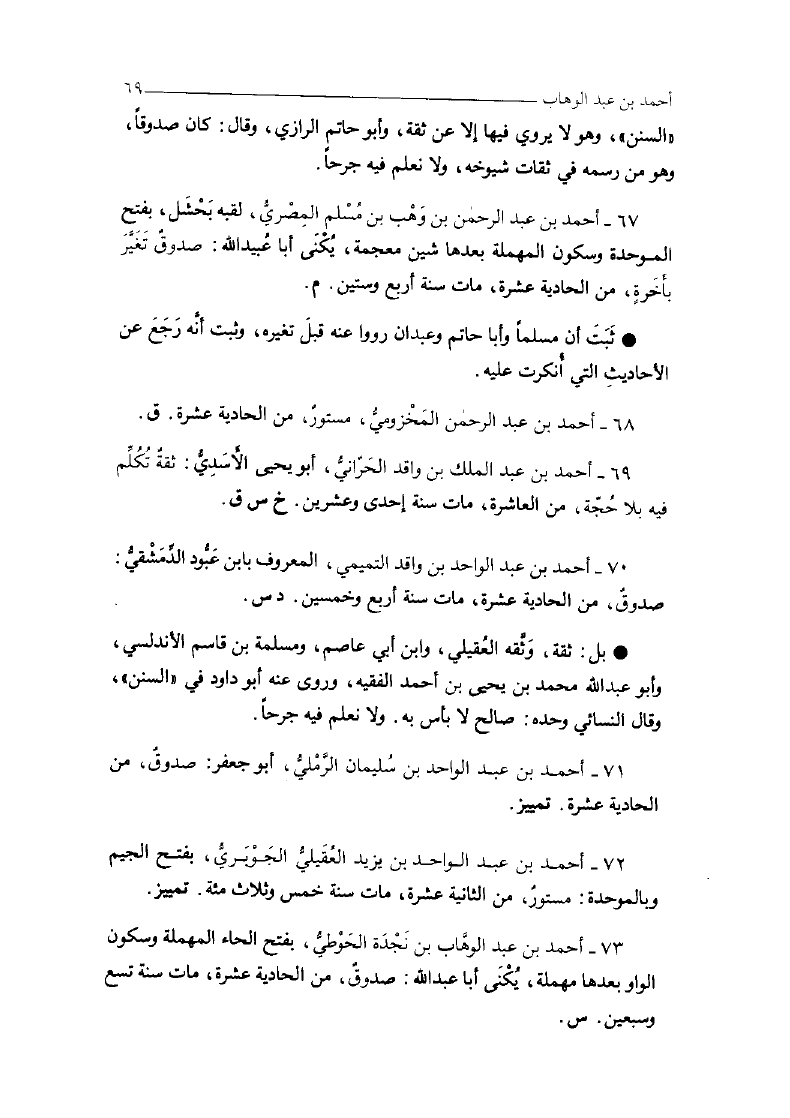 أحمد بن عبد الوهاب ــــــــــــــــــــــــــــــــ ٦٩
«السنن»، وهو لا يروي فيها إلا عن ثقة، وأبو حاتم الرازي، وقال: كان صدوقاً،
وهو من رسمه في ثقات شيوخه، ولا نعلم فيه جرحاً.
٦٧ ـ أحمد بن عبد الرحمٰن بن وَهْب بن مُسْلم المِصْريُّ، لقبه بَحْشَل، بفتح
الموحدة وسكون المهملة بعدها شين معجمة، يُكْنَى أبا عُبيدالله: صدوقٌ تَغَيَّرَ
بأَخَرةٍ، من الحادية عشرة، مات سنة أربع وستين. م.
● ثَبَتَ أن مسلماً وأبا حاتم وعبدان رووا عنه قبلَ تغيره، وثبت أنَّه رَجَعَ عن
الأحاديثِ التي أُنكرت عليه.
٦٨ ـ أحمد بن عبد الرحمٰن المَخْزوميُّ، مستورٌ، من الحادية عشرة. ق.
٦٩ ـ أحمد بن عبد الملك بن واقد الحَرّانيُّ، أبو يحيى الأَسَدِيُّ: ثقةٌ تُكُلِّم
فيه بلا حُجّة، من العاشرة، مات سنة إحدى وعشرين. خ س ق.
٧٠ ـ أحمد بن عبد الواحد بن واقد التميمي، المعروف بابن عَبُّود الدِّمَشْقيُّ:
صدوقٌ، من الحادية عشرة، مات سنة أربع وخمسين. د س.
● بل: ثقة، وَثَّقه العُقيلي، وابن أبي عاصم، ومسلمة بن قاسم الأندلسي،
وأبو عبدالله محمد بن يحيى بن أحمد الفقيه، وروى عنه أبو داود في «السنن»،
وقال النسائي وحده: صالح لا بأس به. ولا نعلم فيه جرحاً.
٧١ ـ أحمد بن عبد الواحد بن سُليمان الرَّمْليُّ، أبو جعفر: صدوقٌ، من
الحادية عشرة. تمييز.
٧٢ ـ أحمد بن عبد الواحد بن يزيد العُقَيليُّ الجَوْبَريُّ، بفتح الجيم
وبالموحدة: مستورٌ، من الثانية عشرة، مات سنة خمس وثلاث مئة. تمييز.
٧٣ ـ أحمد بن عبد الوهَّاب بن نَجْدَة الحَوْطيُّ، بفتح الحاء المهملة وسكون
الواو بعدها مهملة، يُكْنَى أبا عبدالله: صدوقٌ، من الحادية عشرة، مات سنة تسع
وسبعين. س.